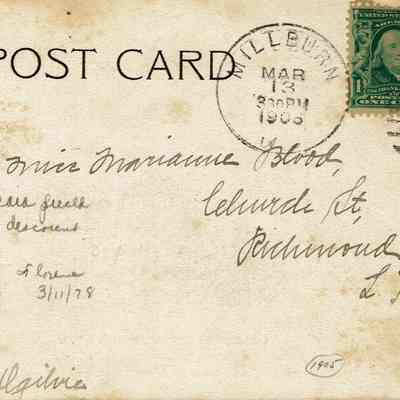 POST CARD
MILLBURN
MAR
13
330PM
1905
1
ONE C
Miss Marianne Blood,
Church St,
Richmond
descount
Florene
3/11/78
1905
Ogilvie